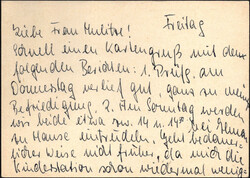 Freitag
Liebe Frau Mulitze!
Schnell einen Kartengruß mit dem
folgenden Berichten: 1. Prüfg. am
Donnerstag verlief gut, ganz zu meiner
Befriedigung. 2. Am Sonntag werden
wir beide etwa zw. 14 u. 15° bei Ihnen
zu Hause eintrudeln. Geht bedauer-
licher Weise nicht früher, da mich die
Kinderstation schon wiedermal wenig